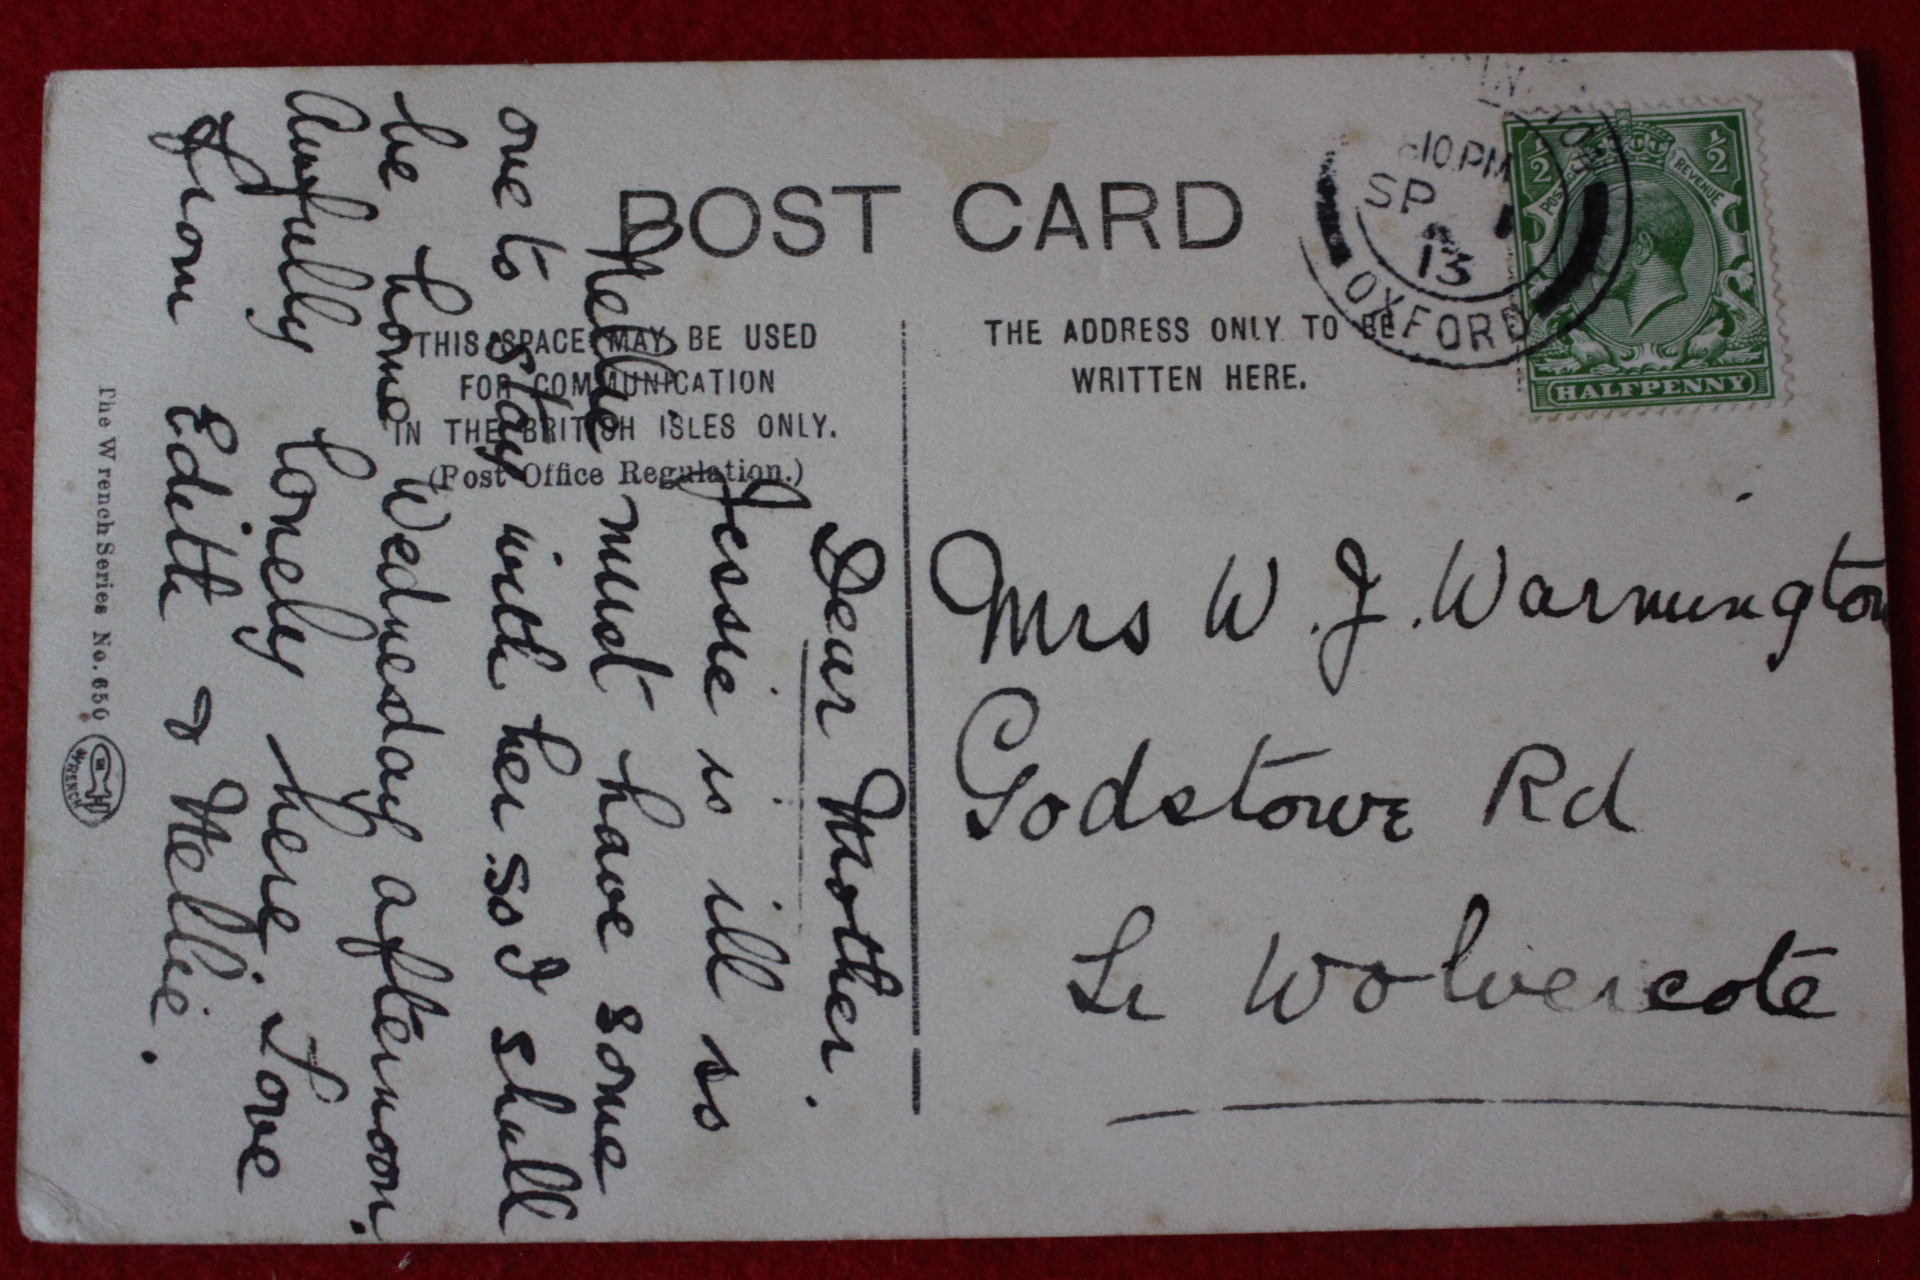 POST CARD
THIS SPACE MAY BE USED
FOR COMMUNICATION
IN THE BRITISH ISLES ONLY.
(Post Office Regulation.)
THE ADDRESS ONLY TO BE
WRITTEN HERE.
10.PM
SP
13
OXFORD
½ ½
POSTAGE REVENUE
HALFPENNY
Dear Mother.
Jessie is ill so
Nellie must have some
one to stay with her so I shall
be home Wednesday afternoon.
Awfully lonely here. Love
from Edith & Nellie.
Mrs W. J. Warmington
Godstowe Rd
Wolvercote
The Wrench Series No. 650
WRENCH